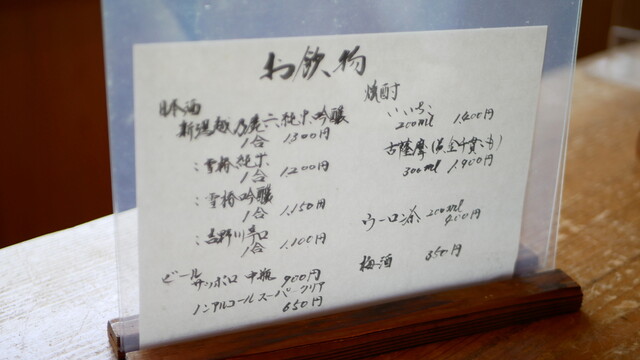 お飲物
日本酒
新潟越乃鹿六純米吟醸
1合 1,300円
:雪椿純米
1合 1,200円
:雪椿吟醸
1合 1,150円
:吉野川辛口
1合 1,100円
ビール
サッポロ 中瓶 900円
ノンアルコールスーパークリア
650円
焼酎
いいちこ
200ml 1,400円
古薩摩(黄金千貫いも)
300ml 1,900円
ウーロン茶 200ml
400円
梅酒 850円